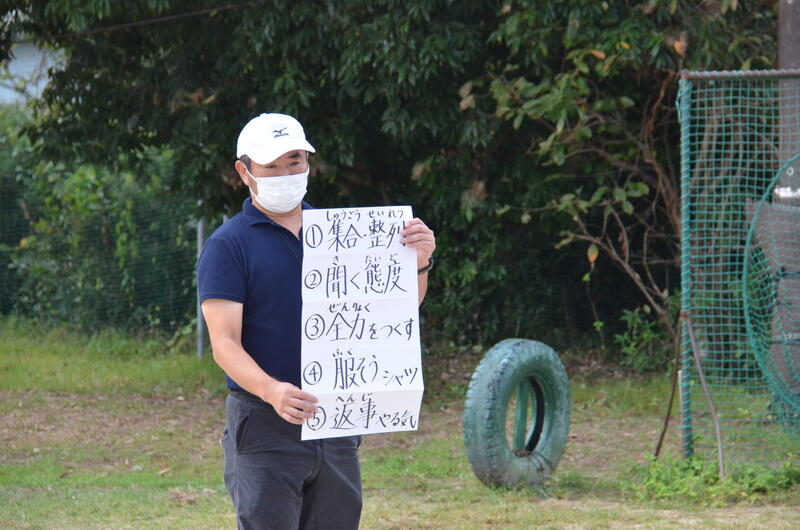 しゅうごう せいれつ
①集合・整列
き たいど
②聞く態度
ぜんりょく
③全力をつくす
ふく
④服そう シャツ
へんじ
⑤返事 やる気